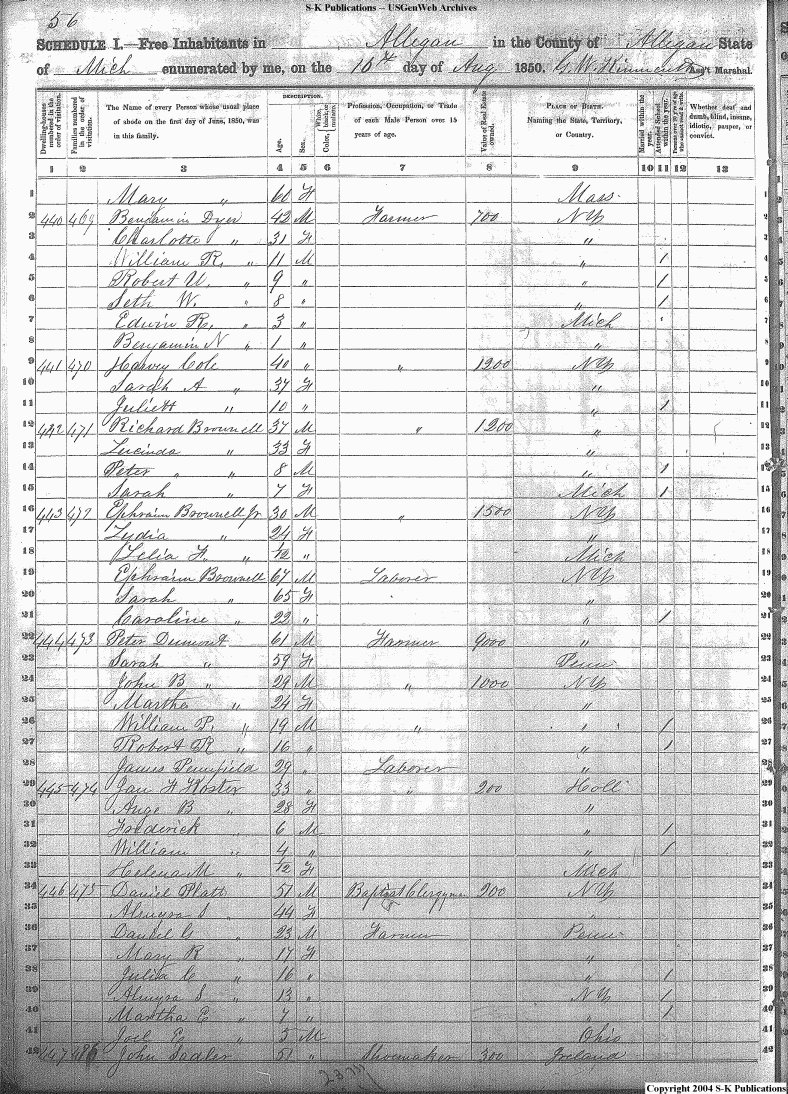 S-K Publications – USGenWeb Archives
56
SCHEDULE I.—Free Inhabitants in Allegan in the County of Allegan State
of Mich enumerated by me, on the 16th day of Aug 1850. G. W. Ass't Marshal.
Dwelling-houses numbered in the order of visitation.
Families numbered in the order of visitation.
The Name of every Person whose usual place of abode on the first day of June, 1850, was in this family.
DESCRIPTION.
Age.
Sex.
Color, White, black, or mulatto.
Profession, Occupation, or Trade of each Male Person over 15 years of age.
Value of Real Estate owned.
PLACE OF BIRTH. Naming the State, Territory, or Country.
Married within the year.
Attended School within the year.
Persons over 20 y'rs of age who cannot read & write.
Whether deaf and dumb, blind, insane, idiotic, pauper, or convict.
1 2 3 4 5 6 7 8 9 10 11 12 13
1 Mary " 60 F Mass 1
2 440 469 Benjamin Dyer 42 M Farmer 700 NY 2
3 Charlotte " 31 F " 3
4 William R. " 11 M " / 4
5 Robert U. " 9 " " / 5
6 Seth W. " 8 " " / 6
7 Edwin R. " 3 " Mich 7
8 Benjamin N " 1 " " 8
9 441 470 Harvey Cole 40 " " 1200 NY 9
10 Sarah A " 37 F " 10
11 Juliett " 10 " " / 11
12 442 471 Richard Brownell 37 M " 1200 " 12
13 Lucinda " 33 F " 13
14 Peter " " 8 M " / 14
15 Sarah " 7 F Mich / 15
16 443 472 Ephraim Brownell Jr 30 M " 1500 NY 16
17 Lydia " 24 F " 17
18 Celia F. " /12 " Mich 18
19 Ephraim Brownell 67 M Laborer NY 19
20 Sarah " 65 F " 20
21 Caroline " 22 " " / 21
22 444 473 Peter Dumont 61 M Farmer 9000 " 22
23 Sarah " 59 F Penn 23
24 John B " 29 M " 1000 NY 24
25 Martha " 24 F " 25
26 William P. " 19 M " " / 26
27 Robert R " 16 " " / 27
28 James Pennfield 29 " Laborer " 28
29 445 474 Jan H Koster 33 " " 200 Holl 29
30 Auge B " 28 F " 30
31 Frederick " 6 M " / 31
32 William " 4 " " / 32
33 Helena M " /12 F Mich 33
34 446 475 Daniel Platt 51 M Baptist Clergyman 200 NY 34
35 Almyra S " 44 F " 35
36 Daniel G " 23 M Farmer Penn 36
37 Mary R " 17 F " 37
38 Julia C " 16 " " / 38
39 Almyra S " 13 " NY / 39
40 Martha E " 7 " " / 40
41 Joel E " 5 M Ohio 41
42 447 John Sadler 51 " Shoemaker 300 Ireland 42
Copyright 2004 S-K Publications